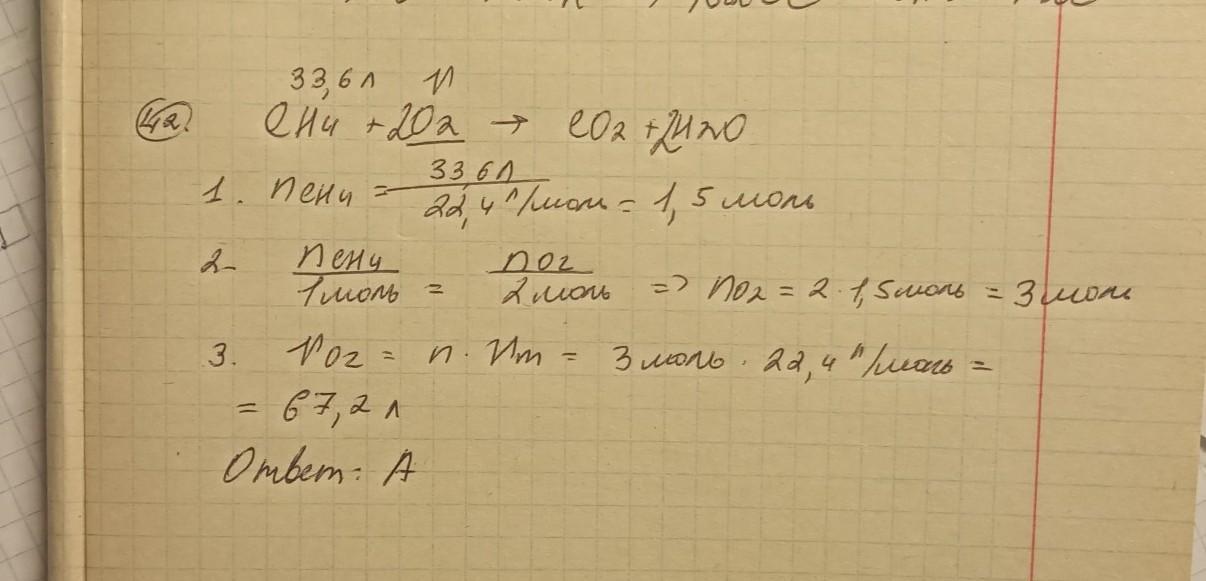 33,6 л V
42. CH4 + 2O2 → CO2 + 2H2O
1. nCH4 = 33,6 л / 22,4 л/моль = 1,5 моль
2- nCH4 / 1 моль = nO2 / 2 моль => nO2 = 2 · 1,5 моль = 3 моль
3. VO2 = n · Vm = 3 моль · 22,4 л/моль =
= 67,2 л
Ответ: А